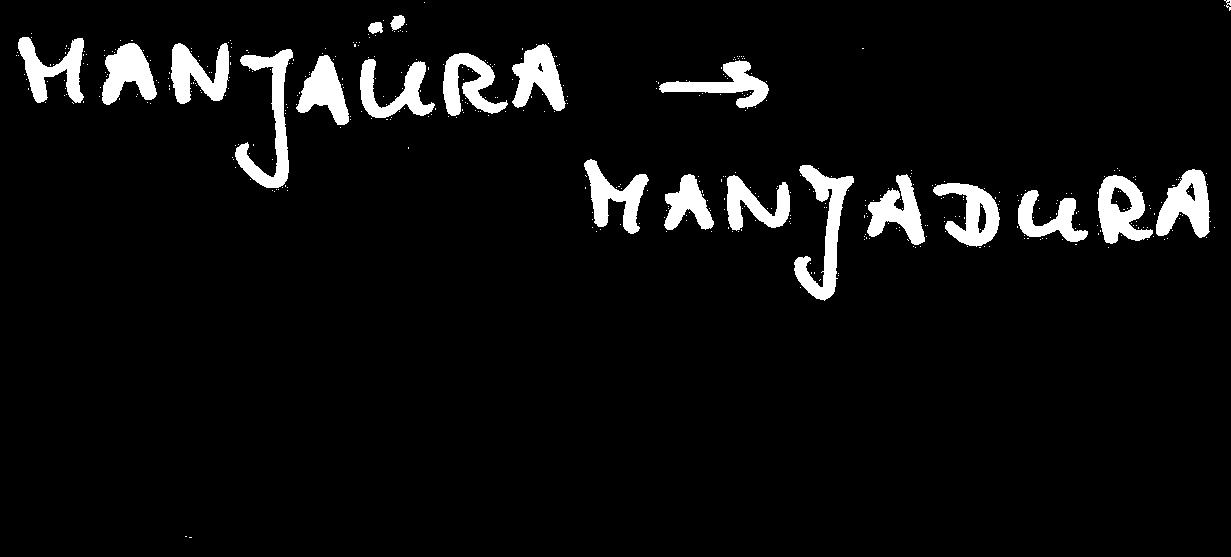 MANJAÜRA →
MANJADURA